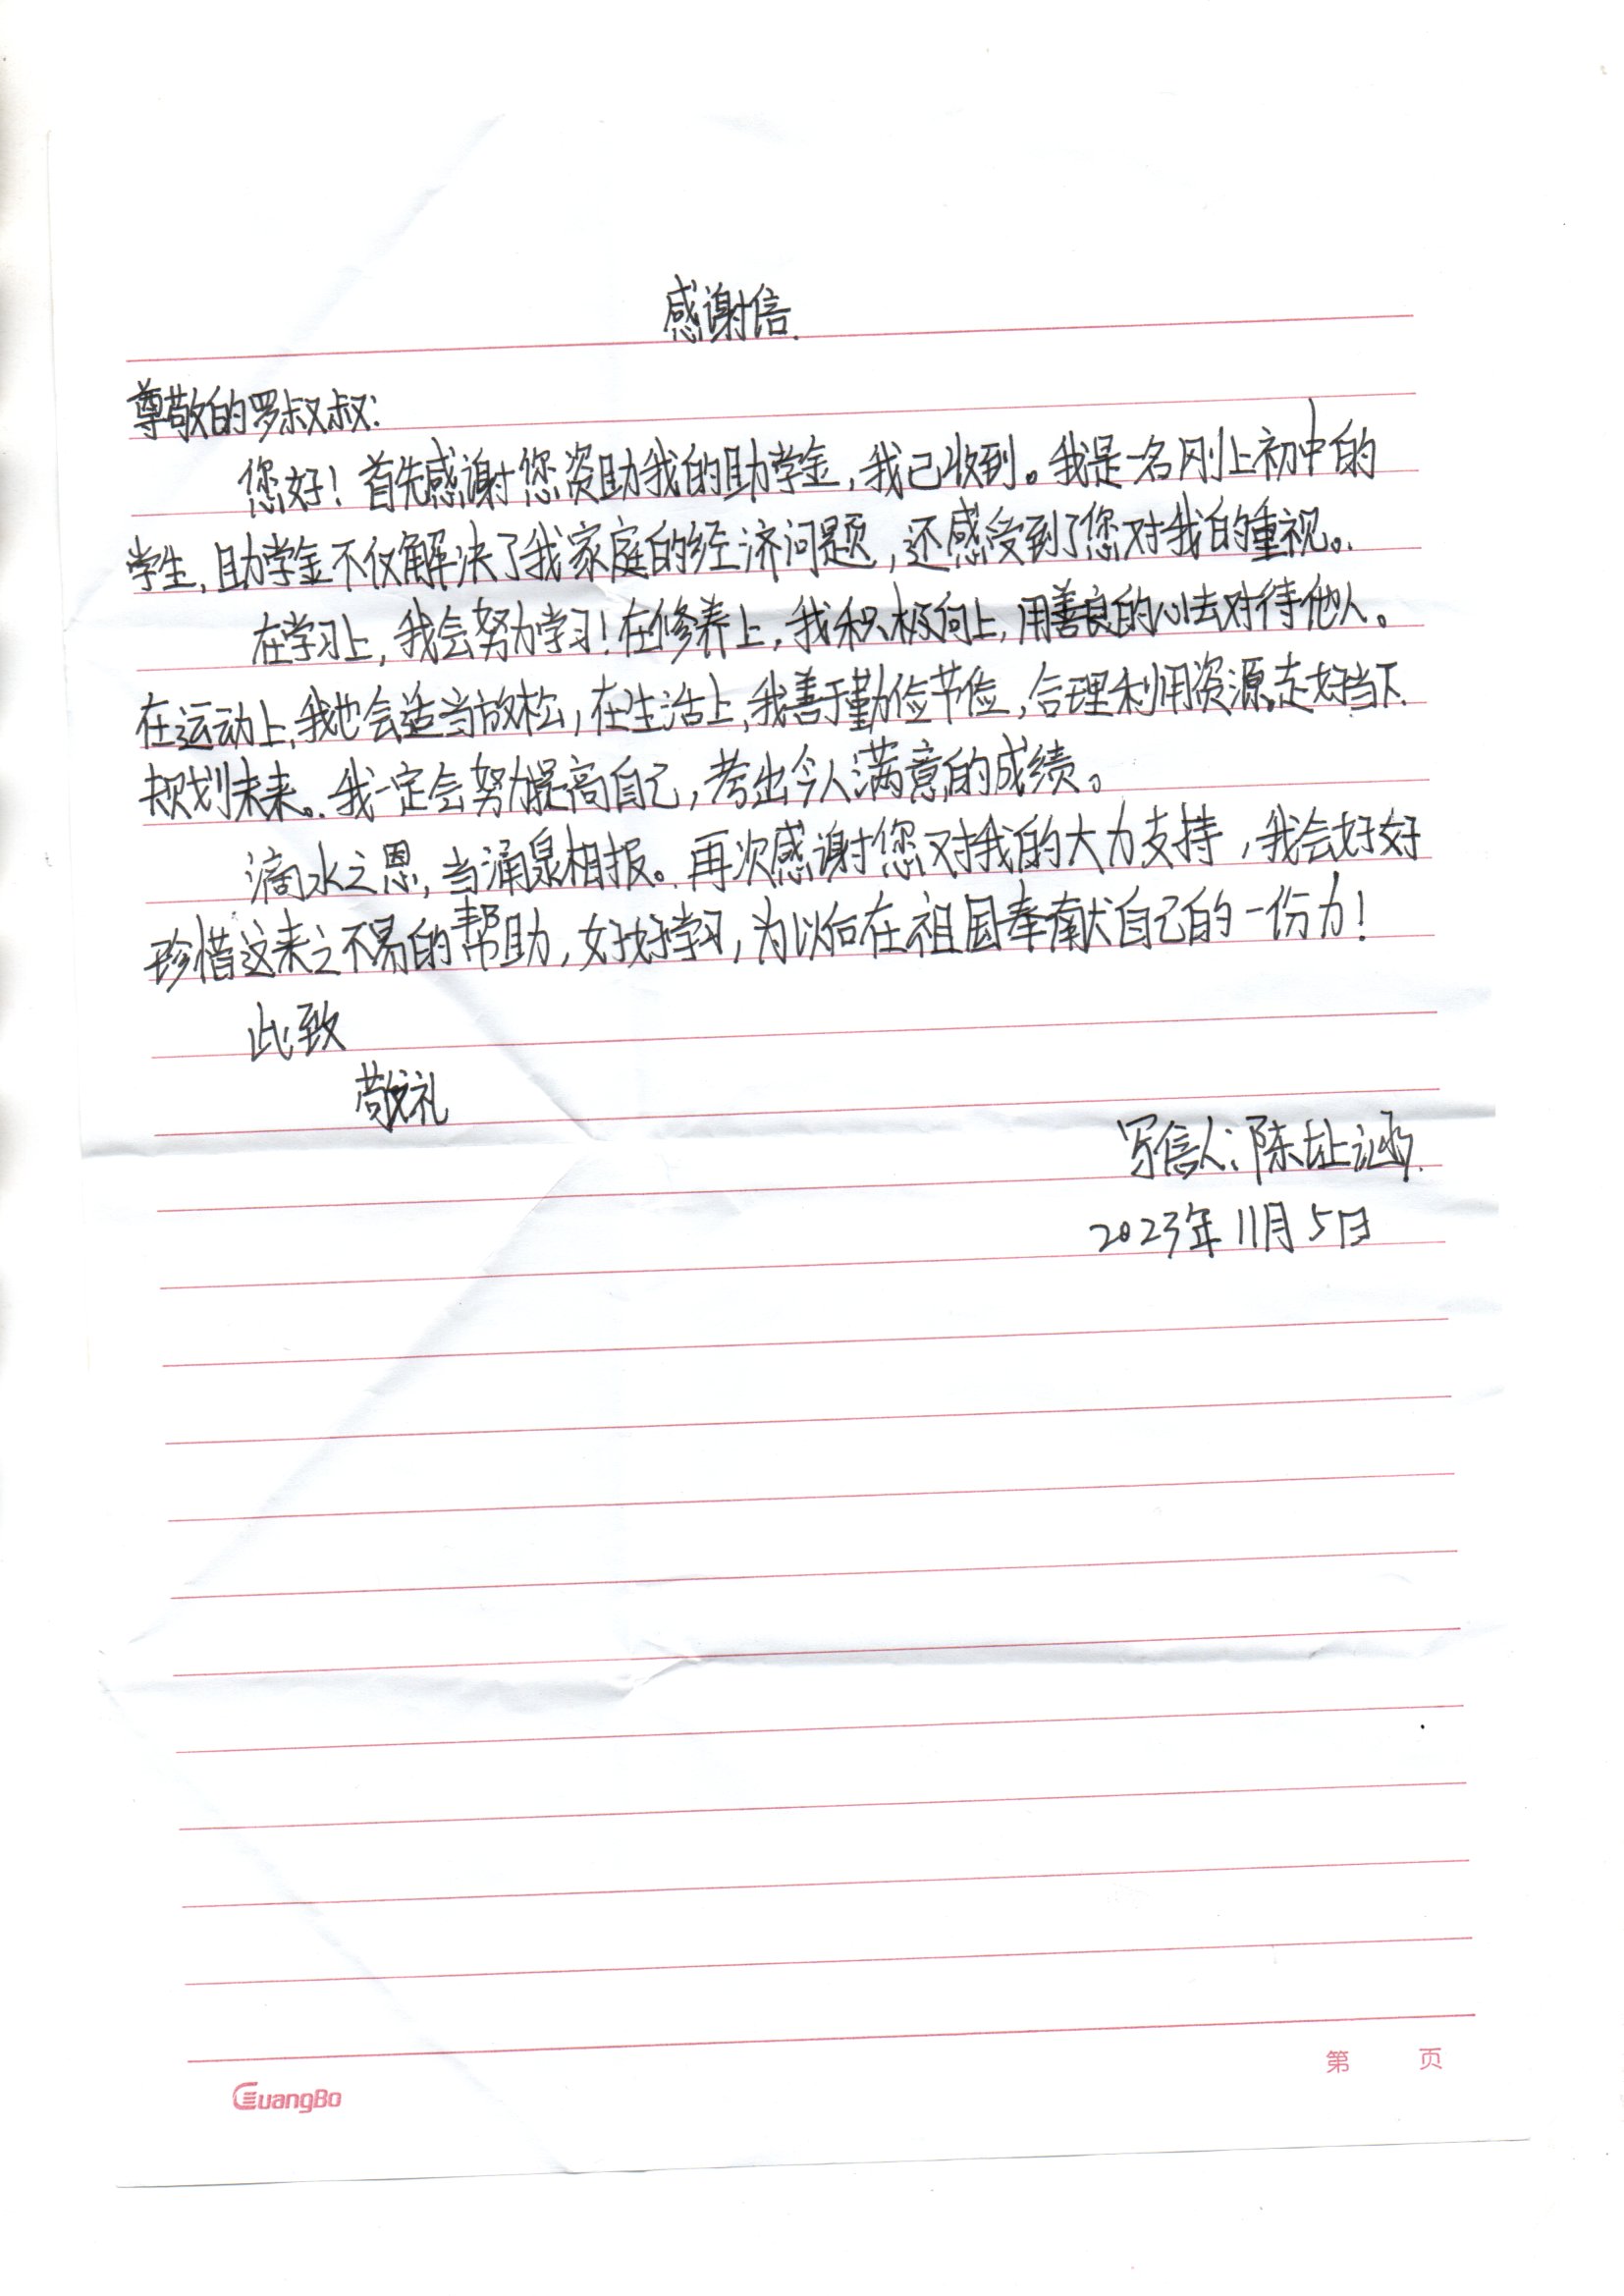 感谢信.
尊敬的罗叔叔:
您好！首先感谢您资助我的助学金，我已收到。我是一名刚上初中的
学生，助学金不仅解决了我家庭的经济问题，还感受到了您对我的重视。
在学习上，我会努力学习！在修养上，我积极向上，用善良的心去对待他人。
在运动上，我也会适当放松，在生活上，我善于勤俭节俭，合理利用资源。走好当下.
规划未来。我一定会努力提高自己，考出令人满意的成绩。
滴水之恩，当涌泉相报。再次感谢您对我的大力支持，我会好好
珍惜这来之不易的帮助，好好学习，为以后在祖国奉献自己的一份力！
此致
敬礼
写信人：陈址涵.
2023年11月5日
第 页
GuangBo